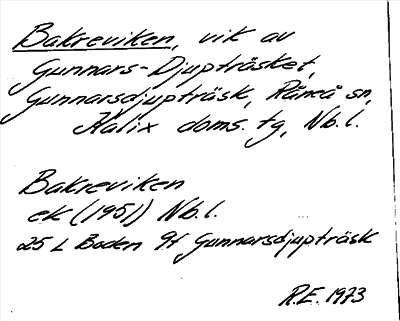 Bakreviken, vik av
Gunnars-Djupträsket,
Gunnarsdjupträsk, Råneå sn,
Kalix doms. tg, Nb.l.
Bakreviken
ek (1951) Nb.l.
25 L Boden 9f Gunnarsdjupträsk
R.E. 1973